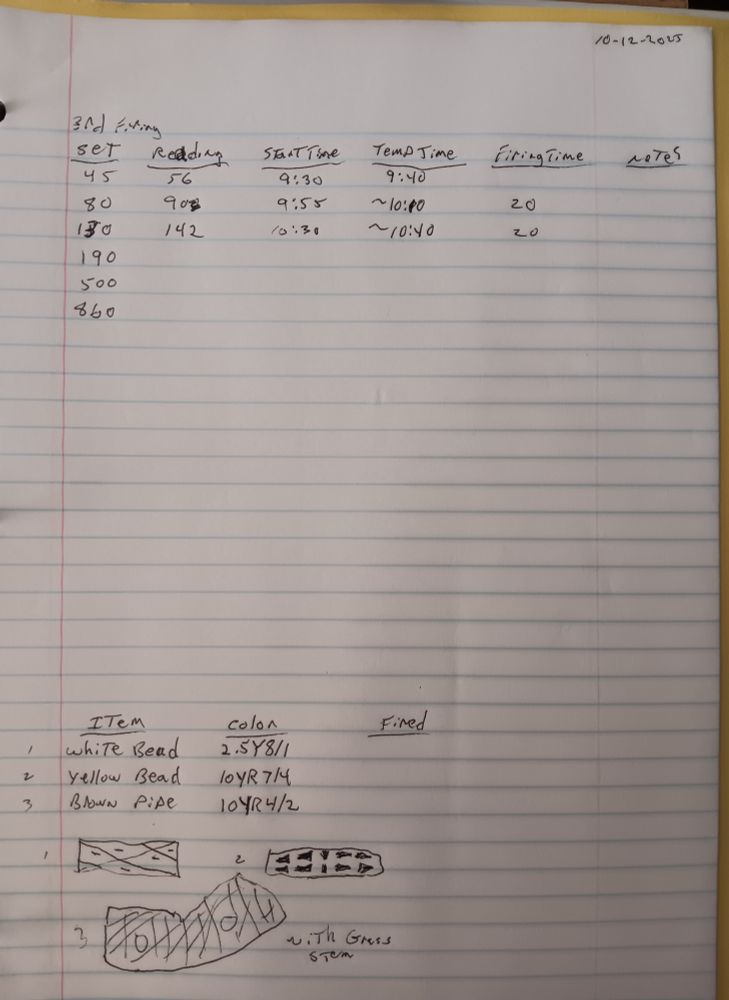 10-12-2025
3rd Firing
SET Reading Start Time Temp Time Firing Time Notes
45 56 9:30 9:40
80 90 9:55 ~10:10 20
130 142 10:30 ~10:40 20
190
500
860
ITem Color Fired
1 White Bead 2.5Y8/1
2 Yellow Bead 10YR7/4
3 Brown Pipe 10YR4/2
1 2
3 with Grass
STem